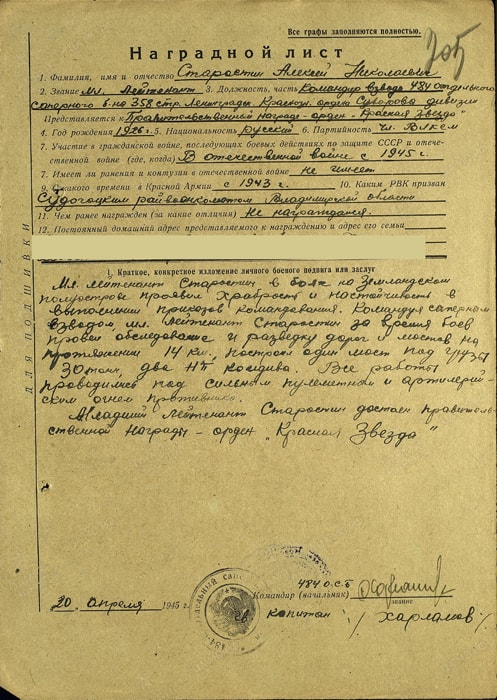 Все графы заполняются полностью.
305
Наградной лист
1. Фамилия, имя и отчество Старостин Алексей Николаевич
2. Звание мл. Лейтенант 3. Должность, часть Командир взвода 484 отдельного
саперного б-на 358 стр. Ленинград. Краснозн. ордена Суворова дивизии
Представляется к Правительственной награде - орден - "Красная Звезда"
4. Год рождения 1926 г. 5. Национальность русский 6. Партийность чл. ВЛКСМ
7. Участие в гражданской войне, последующих боевых действиях по защите СССР и отече-
ственной войне (где, когда) В отечественной войне с 1945 г.
7. Имеет ли ранения и контузии в отечественной войне Не имеет
9. С какого времени в Красной Армии с 1943 г. 10. Каким РВК призван
Судогоцким райвоенкоматом Владимирской области
11. Чем ранее награжден (за какие отличия) Не награждался.
12. Постоянный домашний адрес представляемого к награждению и адрес его семьи
ДЛЯ ПОДШИВКИ
1. Краткое, конкретное изложение личного боевого подвига или заслуг
Мл. лейтенант Старостин в боях на Земландском
полуострове проявил храбрость и настойчивость в
выполнении приказов командования. Командуя саперным
взводом, мл. Лейтенант Старостин за время боев
провел обследование и разведку дорог и мостов на
протяжении 14 км., построил один мост под грузы
30 тонн, два НП комдива. Все работы
проводились под сильным пулеметным и артилерий-
ским огнем противника.
Младший Лейтенант Старостин достоен правитель-
ственной Награды - орден "Красная Звезда"
484 О.С.Б
Командир (начальник)
звание
30 апреля 1945 г.
капитан /Харламов/